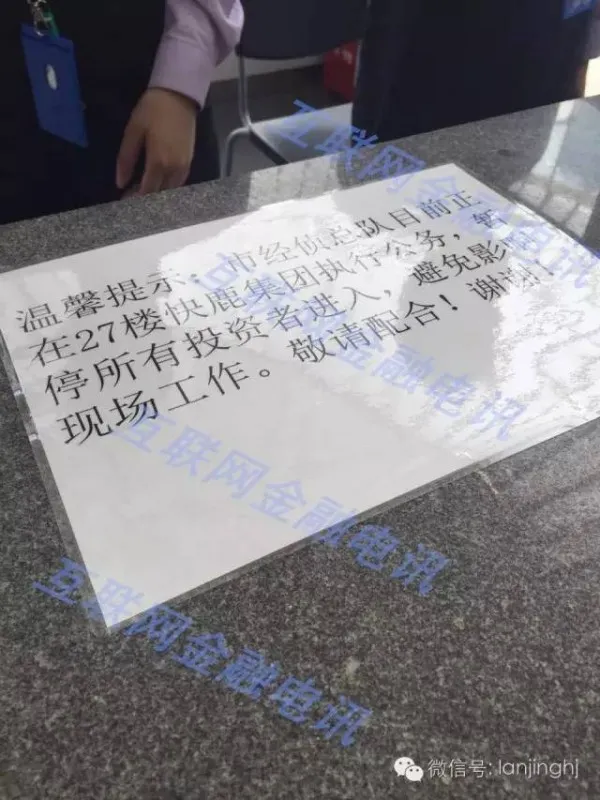 温馨提示：市经侦总队目前正
在27楼快鹿集团执行公务，暂
停所有投资者进入，避免影响
现场工作。敬请配合！谢谢！
互联网金融电讯
互联网金融电讯
互联网金融电讯
互联网金融电讯
微信号: lanjinghj